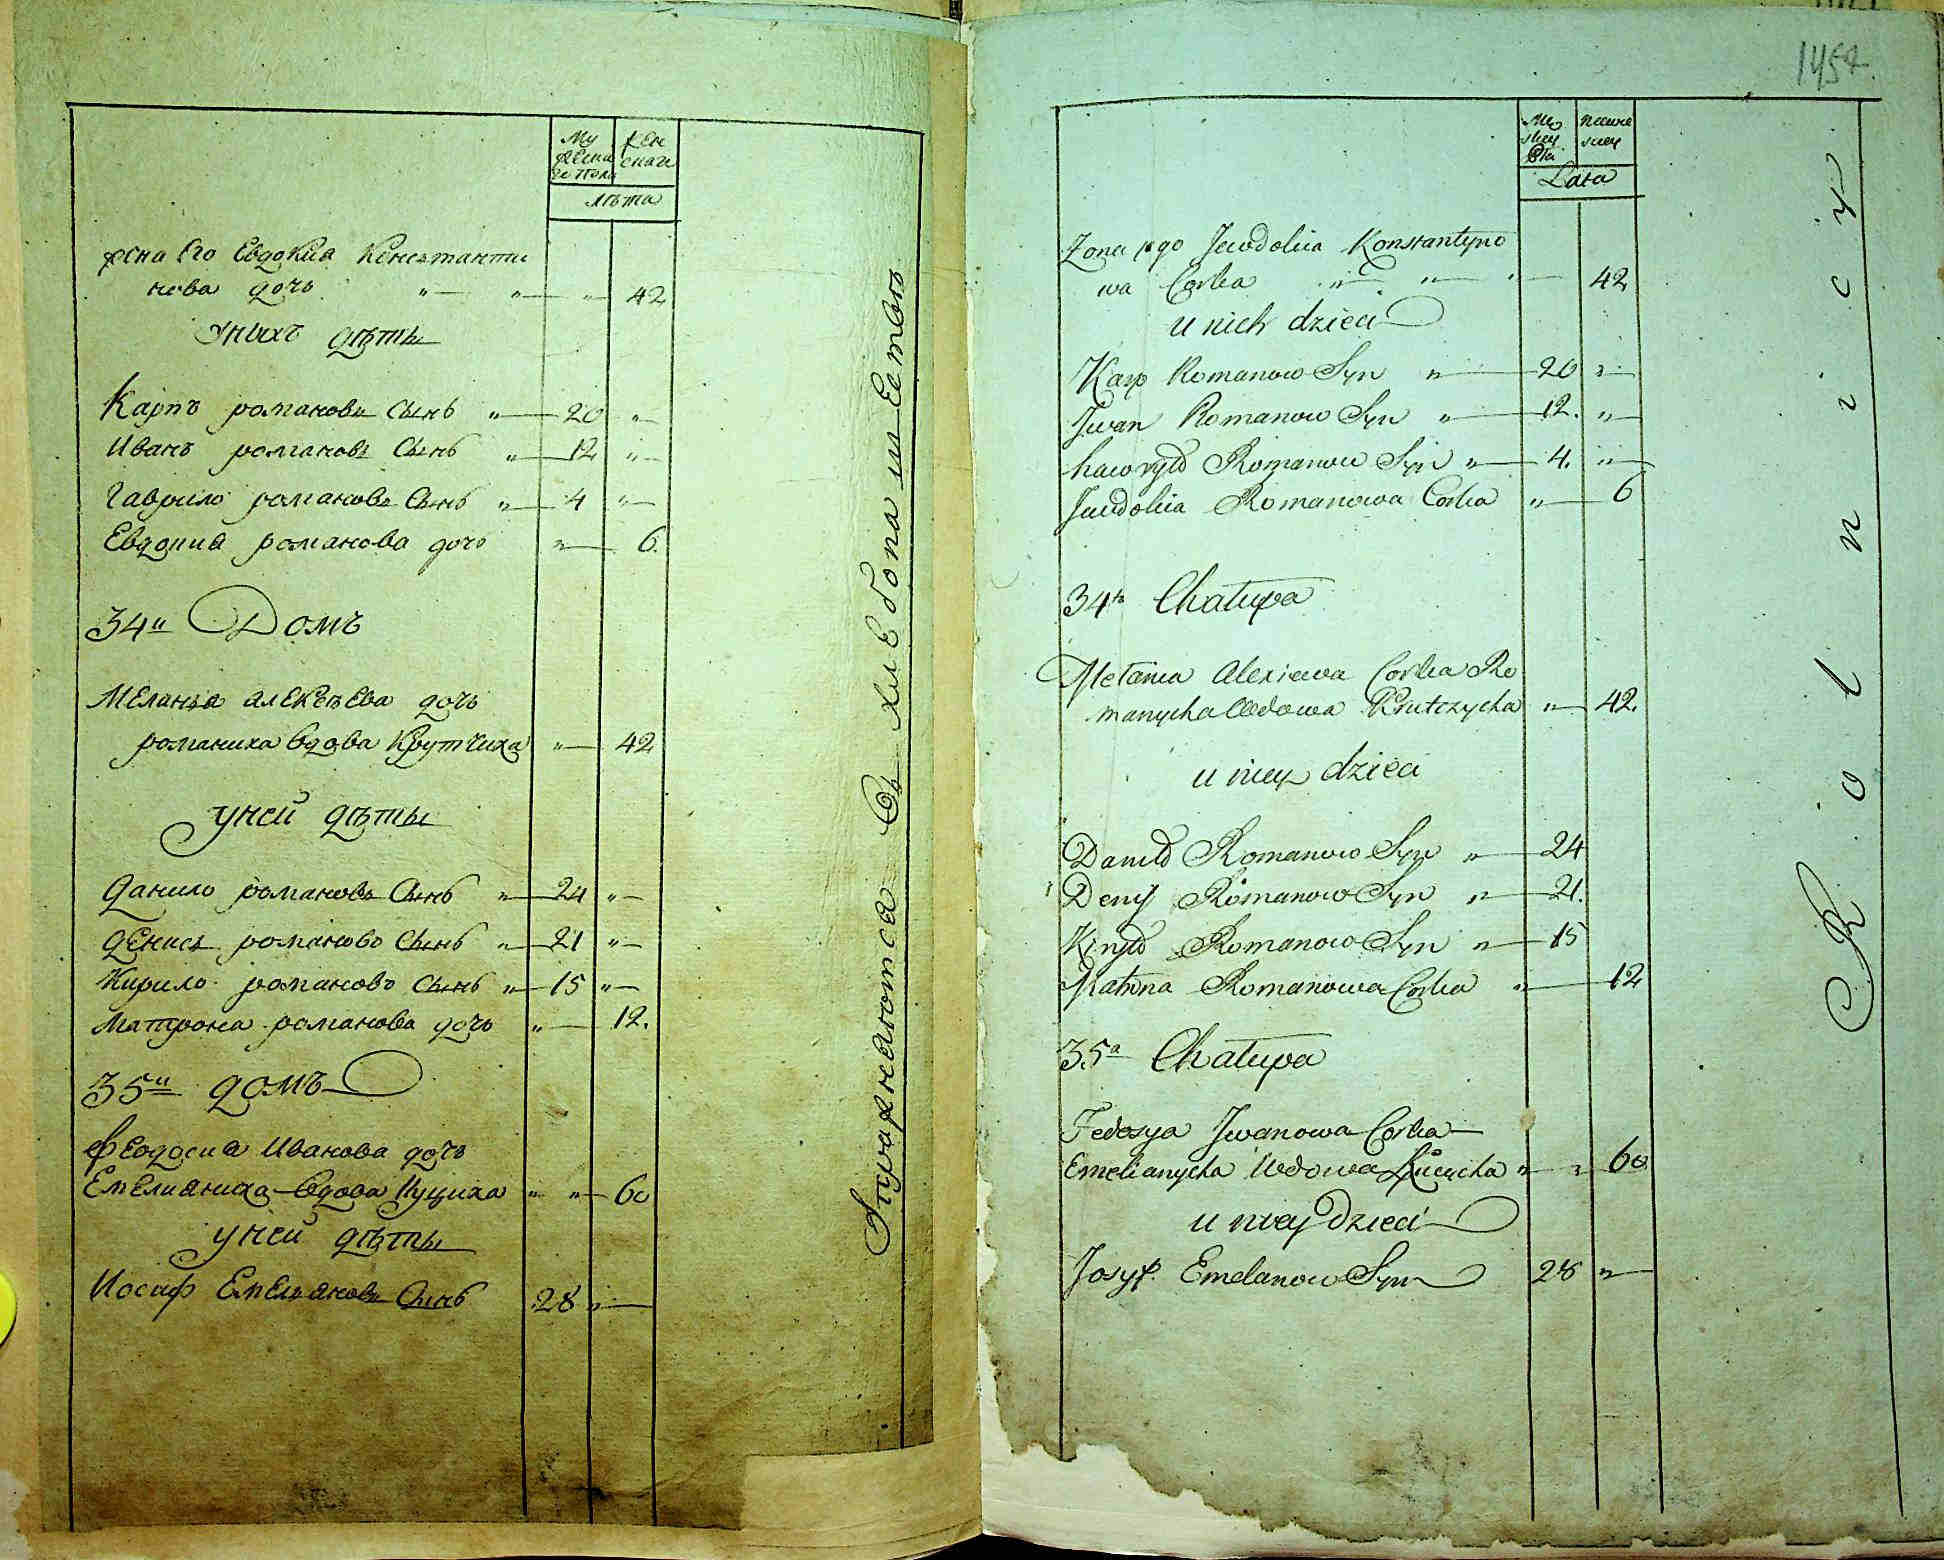 Му
жеска
го пола
жен
скаги
лѣта
жена Его Евдокия Константи
нова дочь " " " 42
Уныхъ дѣты
Карпъ романовъ Сынъ " 20 "
Иванъ романовъ Сынъ " 12 "
Гаврило романовъ Сынъ " 4 "
Евдокия романова дочь " 6.
34й Домъ
Меланья алексѣева дочь
романиха вдова Крутчиха " 42
уней дѣты
Данило романовъ Сынъ " 24 "
Денисъ романовъ Сынъ " 21 "
Кирило романовъ Сынъ " 15 "
Матрона романова дочь " 12.
35й домъ
Феодосия Иванова дочь
Емелияниха вдова Куциха " " 60
уней дѣты
Иосиф Емельяновъ Сынъ 28 "
Упражняются Въ хлебопашестве
1454
Mę
skiey
Płci
Lata
Żona jego Jewdokia Konstantyno
wa Corka " " " 42
u nich dzieci
Karp Romanow Syn " 20 "
Jwan Romanow Syn " 12. "
hawryło Romanow Syn " 4. "
Jewdokia Romanowa Corka " 6
34ta Chałupa
Mełania Alexiewa Corka Ro
manycha Wdowa Krutczycha " 42.
u niey dzieci
Daniło Romanow Syn " 24
Denys Romanow Syn " 21.
Kiryło Romanow Syn " 15
Matrona Romanowa Corka " 12
35a Chałupa
Fedosya Jwanowa Corka
Emelianycha Wdowa Kucycha " " 60.
u niey dzieci
Josyf Emelanow Syn 28 "
Rolnicy